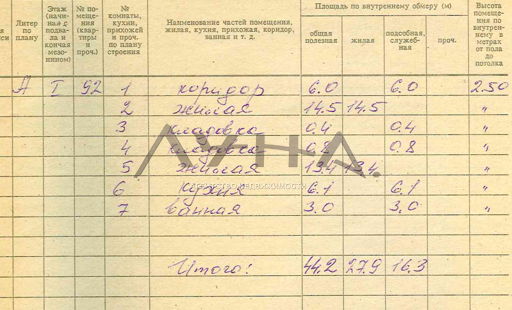 Литер по плану
Этаж (начиная с подвала и кончая мезонином)
№ помещения (квартиры и проч.
№ комнаты, кухни, прихожей и проч. по плану строения
Наименование частей помещения, жилая, кухня, прихожая, коридор, ванная и т. д.
Площадь по внутреннему обмеру (м)
общая полезная
жилая
подсобная, служебная
проч.
Высота помещения по внутреннему в метрах от пола до потолка
А I 92 1 коридор 6.0 6.0 2.50
2 жилая 14.5 14.5 "
3 кладовка 0.4 0.4 "
4 кладовка 0.8 0.8 "
5 жилая 13.4 13.4 "
6 кухня 6.1 6.1 "
7 ванная 3.0 3.0 "
Итого: 44.2 27.9 16.3
ЛУНА